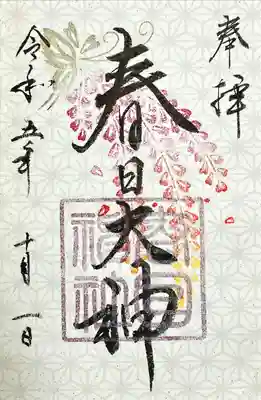 奉拝
春日大神
令和五年 十月一日